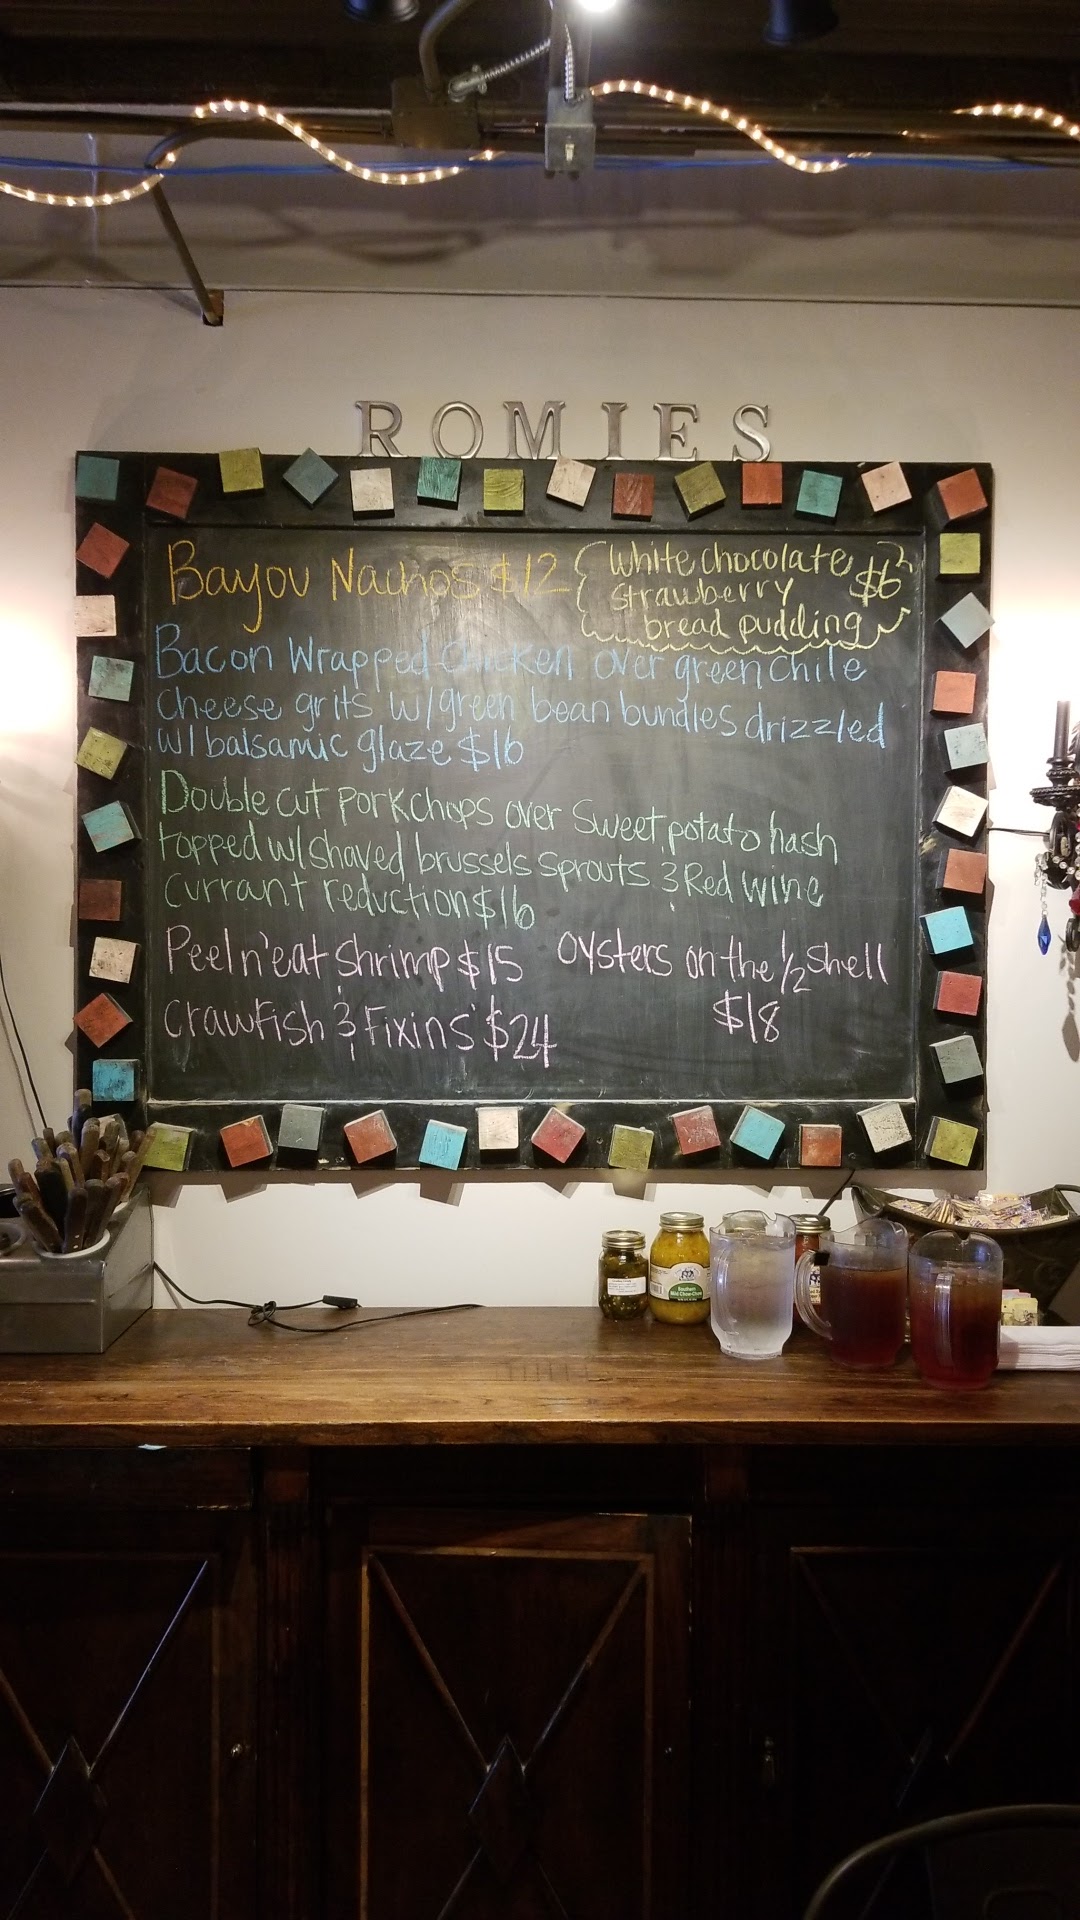 ROMIES
Bayou Nachos $12
White chocolate
strawberry $6
bread pudding
Bacon Wrapped Chicken over green chile
Cheese grits w/green bean bundles drizzled
w/ balsamic glaze $16
Double cut porkchops over sweet potato hash
topped w/shaved brussels sprouts & Red wine
currant reduction $16
Peel n' eat shrimp $15
oysters on the 1/2 shell
$18
Crawfish & Fixins' $24
Southern
Mild Chow-Chow